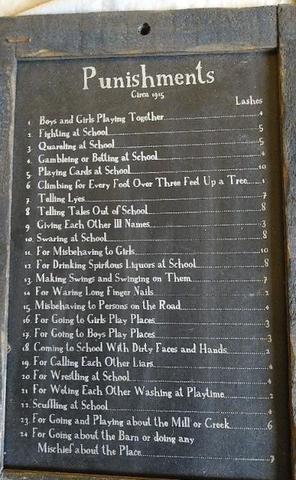 Punishments
Circa 1915
Lashes
1. Boys and Girls Playing Together 4
2. Fighting at School 5
3. Quareling at School 5
4. Gambleing or Betting at School 4
5. Playing Cards at School 10
6. Climbing for Every Foot Over Three Feet Up a Tree 1
7. Telling Lyes 7
8. Telling Tales Out of School 8
9. Giving Each Other Ill Names 3
10. Swaring at School 8
11. For Misbehaving to Girls 10
12. For Drinking Spiritous Liquors at School 8
13. Making Swings and Swinging on Them 7
14. For Waring Long Finger Nails 2
15. Misbehaving to Persons on the Road 4
16. For Going to Girls Play Places 3
17. For Going to Boys Play Places 3
18. Coming to School With Dirty Faces and Hands 2
19. For Calling Each Other Liars 4
20. For Wrestling at School 4
21. For Weting Each Other Washing at Playtime 2
22. Scuffling at School 4
23. For Going and Playing about the Mill or Creek 6
24. For Going about the Barn or doing any
Mischief about the Place 7